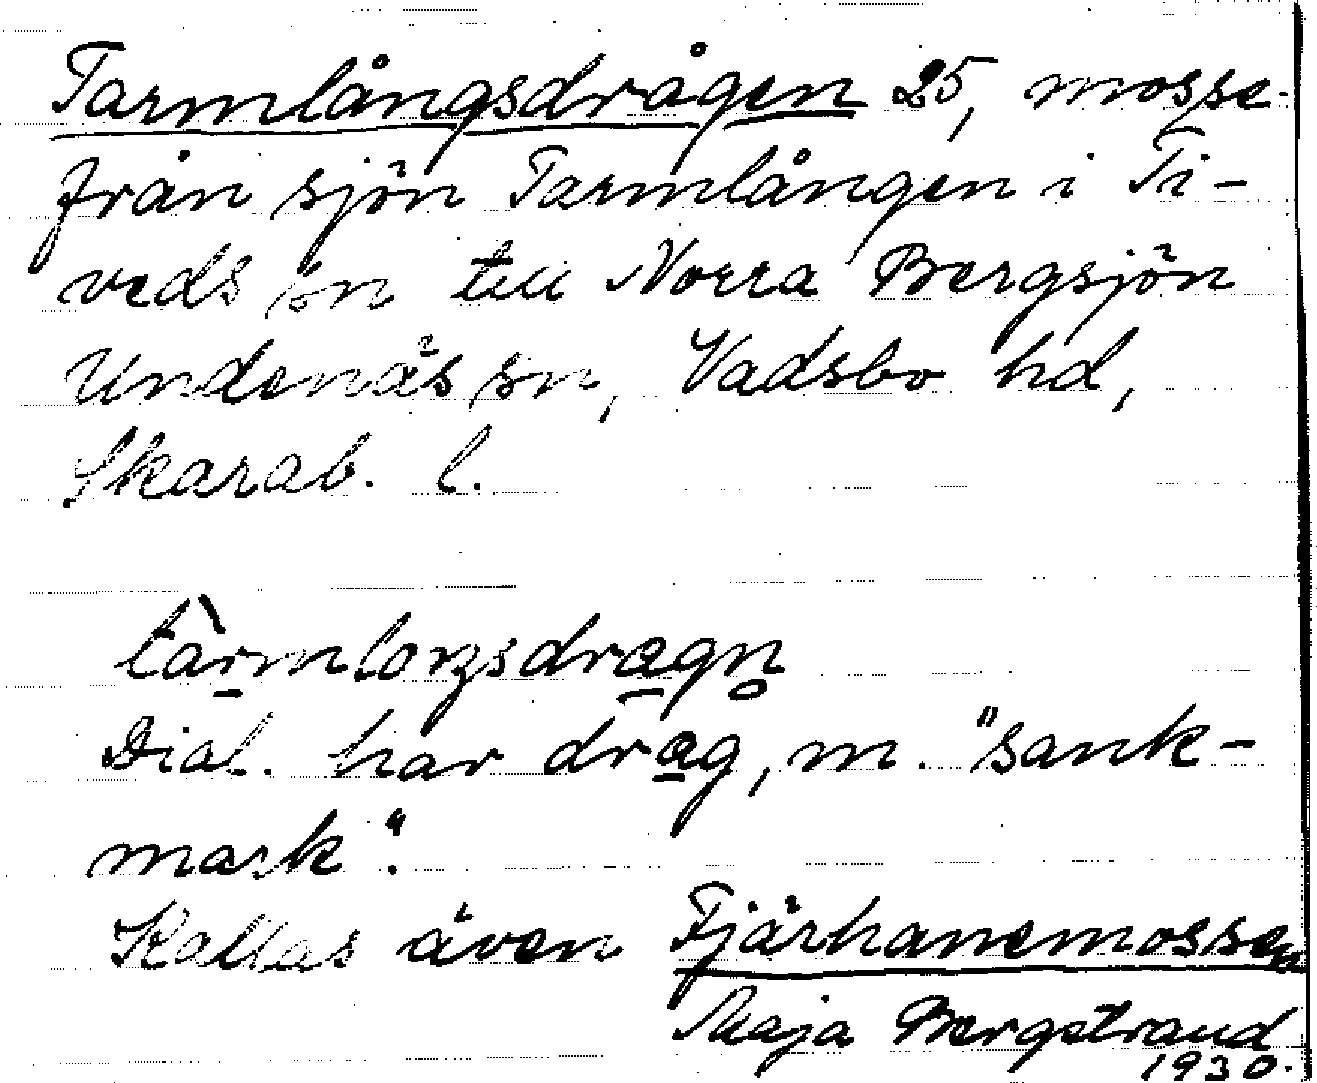 Tarmlångsdrågen 25, mosse
från sjön Tarmlången i Ti-
veds sn till Norra Bergsjön
Undenäs sn, Vadsbo hd,
Skarab. l.
tàrmloŋsdragn̥
Dial. har drag, m. "sank-
mark".
Kallas även Fjärhanemossen
Maja Bergstrand
1930.